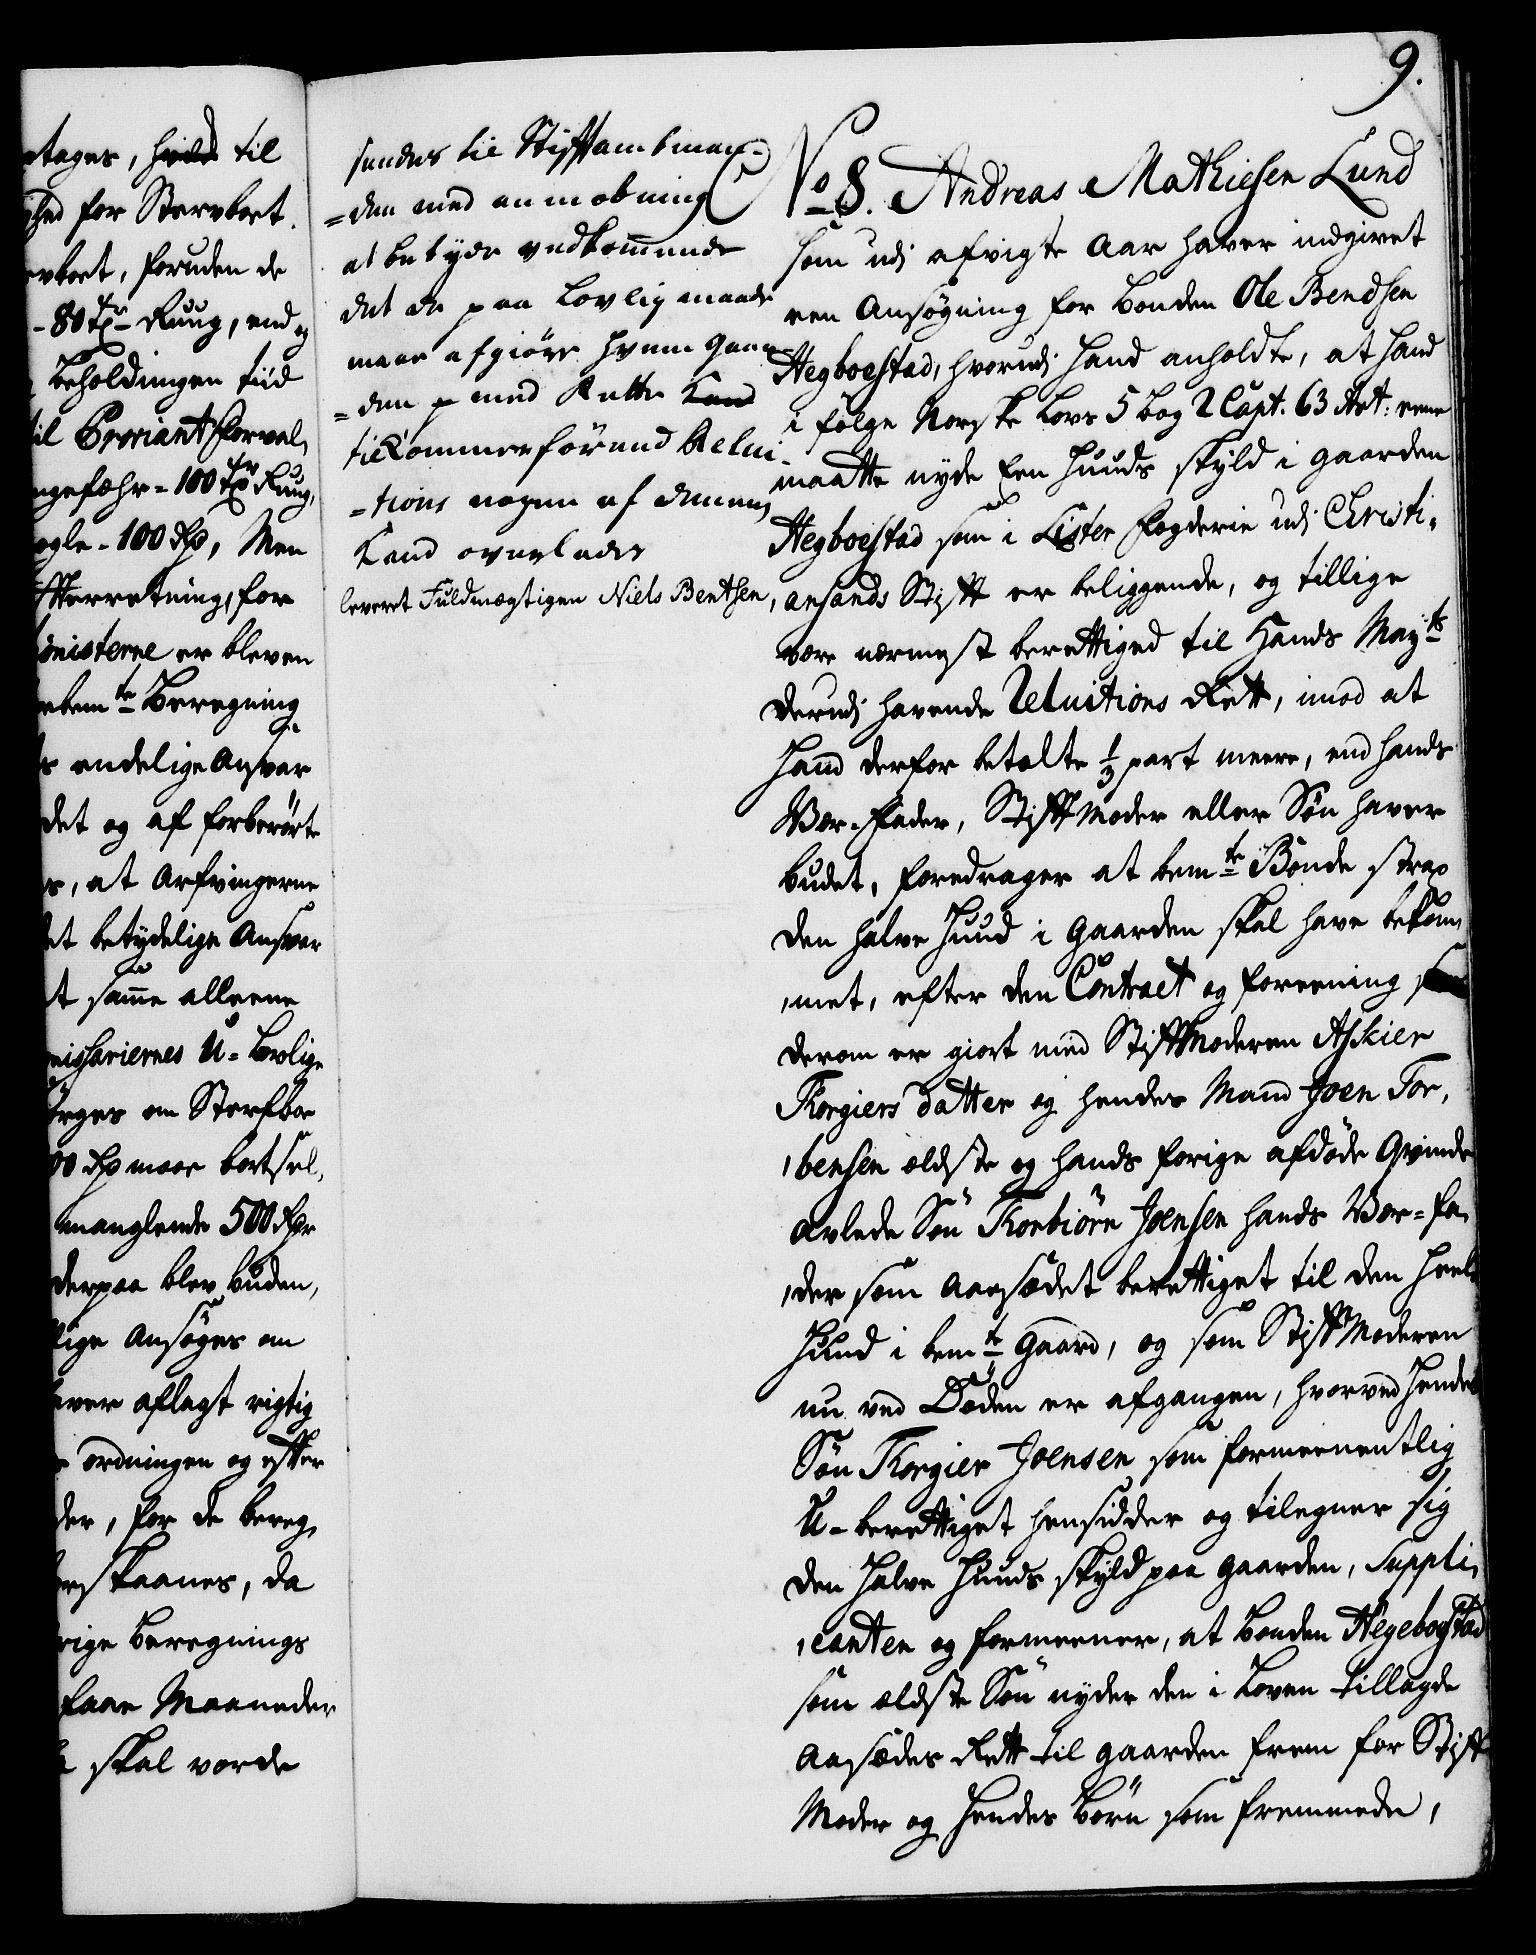 etages, hvilk til
hed for Stervboet.
vboet, foruden de
- 80 Tr Ruug, end og
Beholdingen tiid
til Proviant forval,
ngefæhr = 100 Tr Ruug,
ogle - 100 Rd, Men
fterretning, for
onisterne er bleven
rbemte Beregning
s endelige Ansvar
det og af forberörte
s, at Arfvingerne
et betydelige Ansvar
t samme alleene
missariernes U-lovlige
örges om Sterfboe
00 Rd maae bortsel,
manglende 500 Rdr
derpaa blev buden,
lige Ansøges om
aver aflagt rigtig
ordningen og efter
der, for de bereg,
rskaanes, da
rige Beregnings
faae Maaneder
skal worde
sendes til Stiftambtman-
=den med anmodning
at betyde vedkommende
det de paa lovlig maade
maae afgiöre hvem Gaar
=den med Rette
tilkommer förend Relui-
=tions nogen af dennem
Kand overlades
leveret Fuldmægtigen Niels Bentsen
9.
No 8. Andreas Mathiesen Lund
som udi afvigte Aar haver indgivet
een Ansøgning for Bonden Ole Bendsen
Hegboestad, hvorudi Hand anholdte, at Hand
i følge Norske Lovs 5 Bog 2 Capt. 63 Art: eene
maatte nyde Een Huuds skyld i Gaarden
Hegboestad som i Lister Fogderie udi Christi,
,ansands Stift er beliggende, og tillige
være nærmest berettiged til Hands Mayts
derudi havende Reluitions Rett, imod at
Hand derfor betalte 1/3 part meere, end Hands
Vær-Fader, Stiftmoder eller Søn haver
budet, foredrager at bemte Bonde strax
den halve Huud i Gaarden skal have bekom,
,met, efter den Contract og foreening
derom er giort med Stiftmoderen Askier
Thorgiers datter og hendes Mand Joen Tor,
,bensen ældste og hands forige afdøde Qvinde
avlede Søn Thorbiörn Joensen hands Vær-fa,
,der som Aasædet berettiget til den heele
Huud i bemte Gaard, og som Stiftmoderen
nu ved Døden er afgangen, hvorved Hendes
Søn Thorgier Joensen som formeenentlig
U-berettiget hensidder og tilegner sig
den Halve Huuds skyld paa Gaarden, Suppli,
,canten og formeener, at Bonden Hegeboestad
som ældste Søn nyder den i Loven tillagde
Aasædes Rett til Gaarden frem for Stift
Moder og Hendes Börn som fremmede,